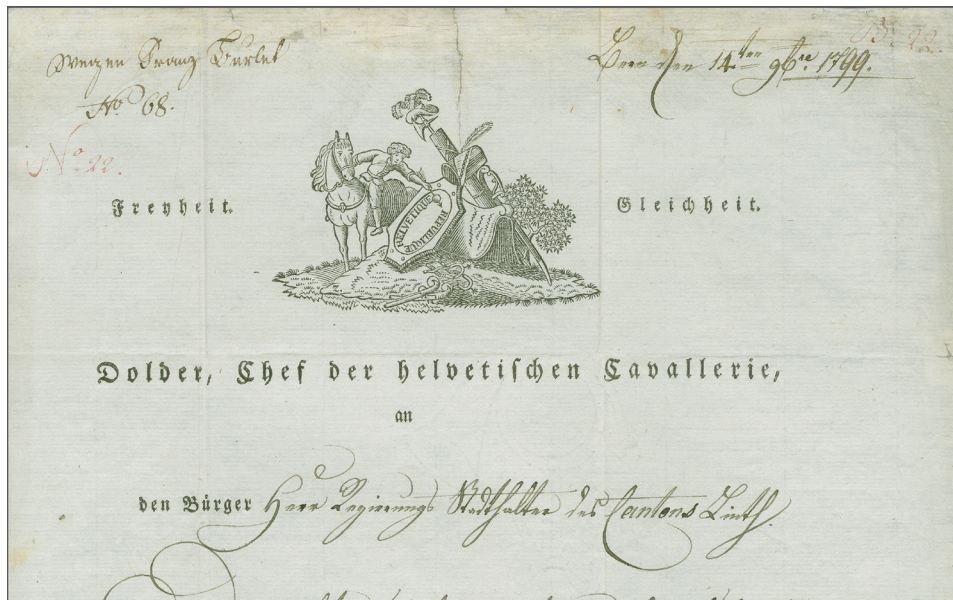 Wegen Franz Turlet
Bern den 14ten 9bre. 1799.
No 68.
No. 22.
Freyheit.
Gleichheit.
REPUBLIQUE HELVETIQUE
Dolder, Chef der helvetischen Cavallerie,
an
den Bürger Herr Regierungs Statthalter des Cantons Linth.